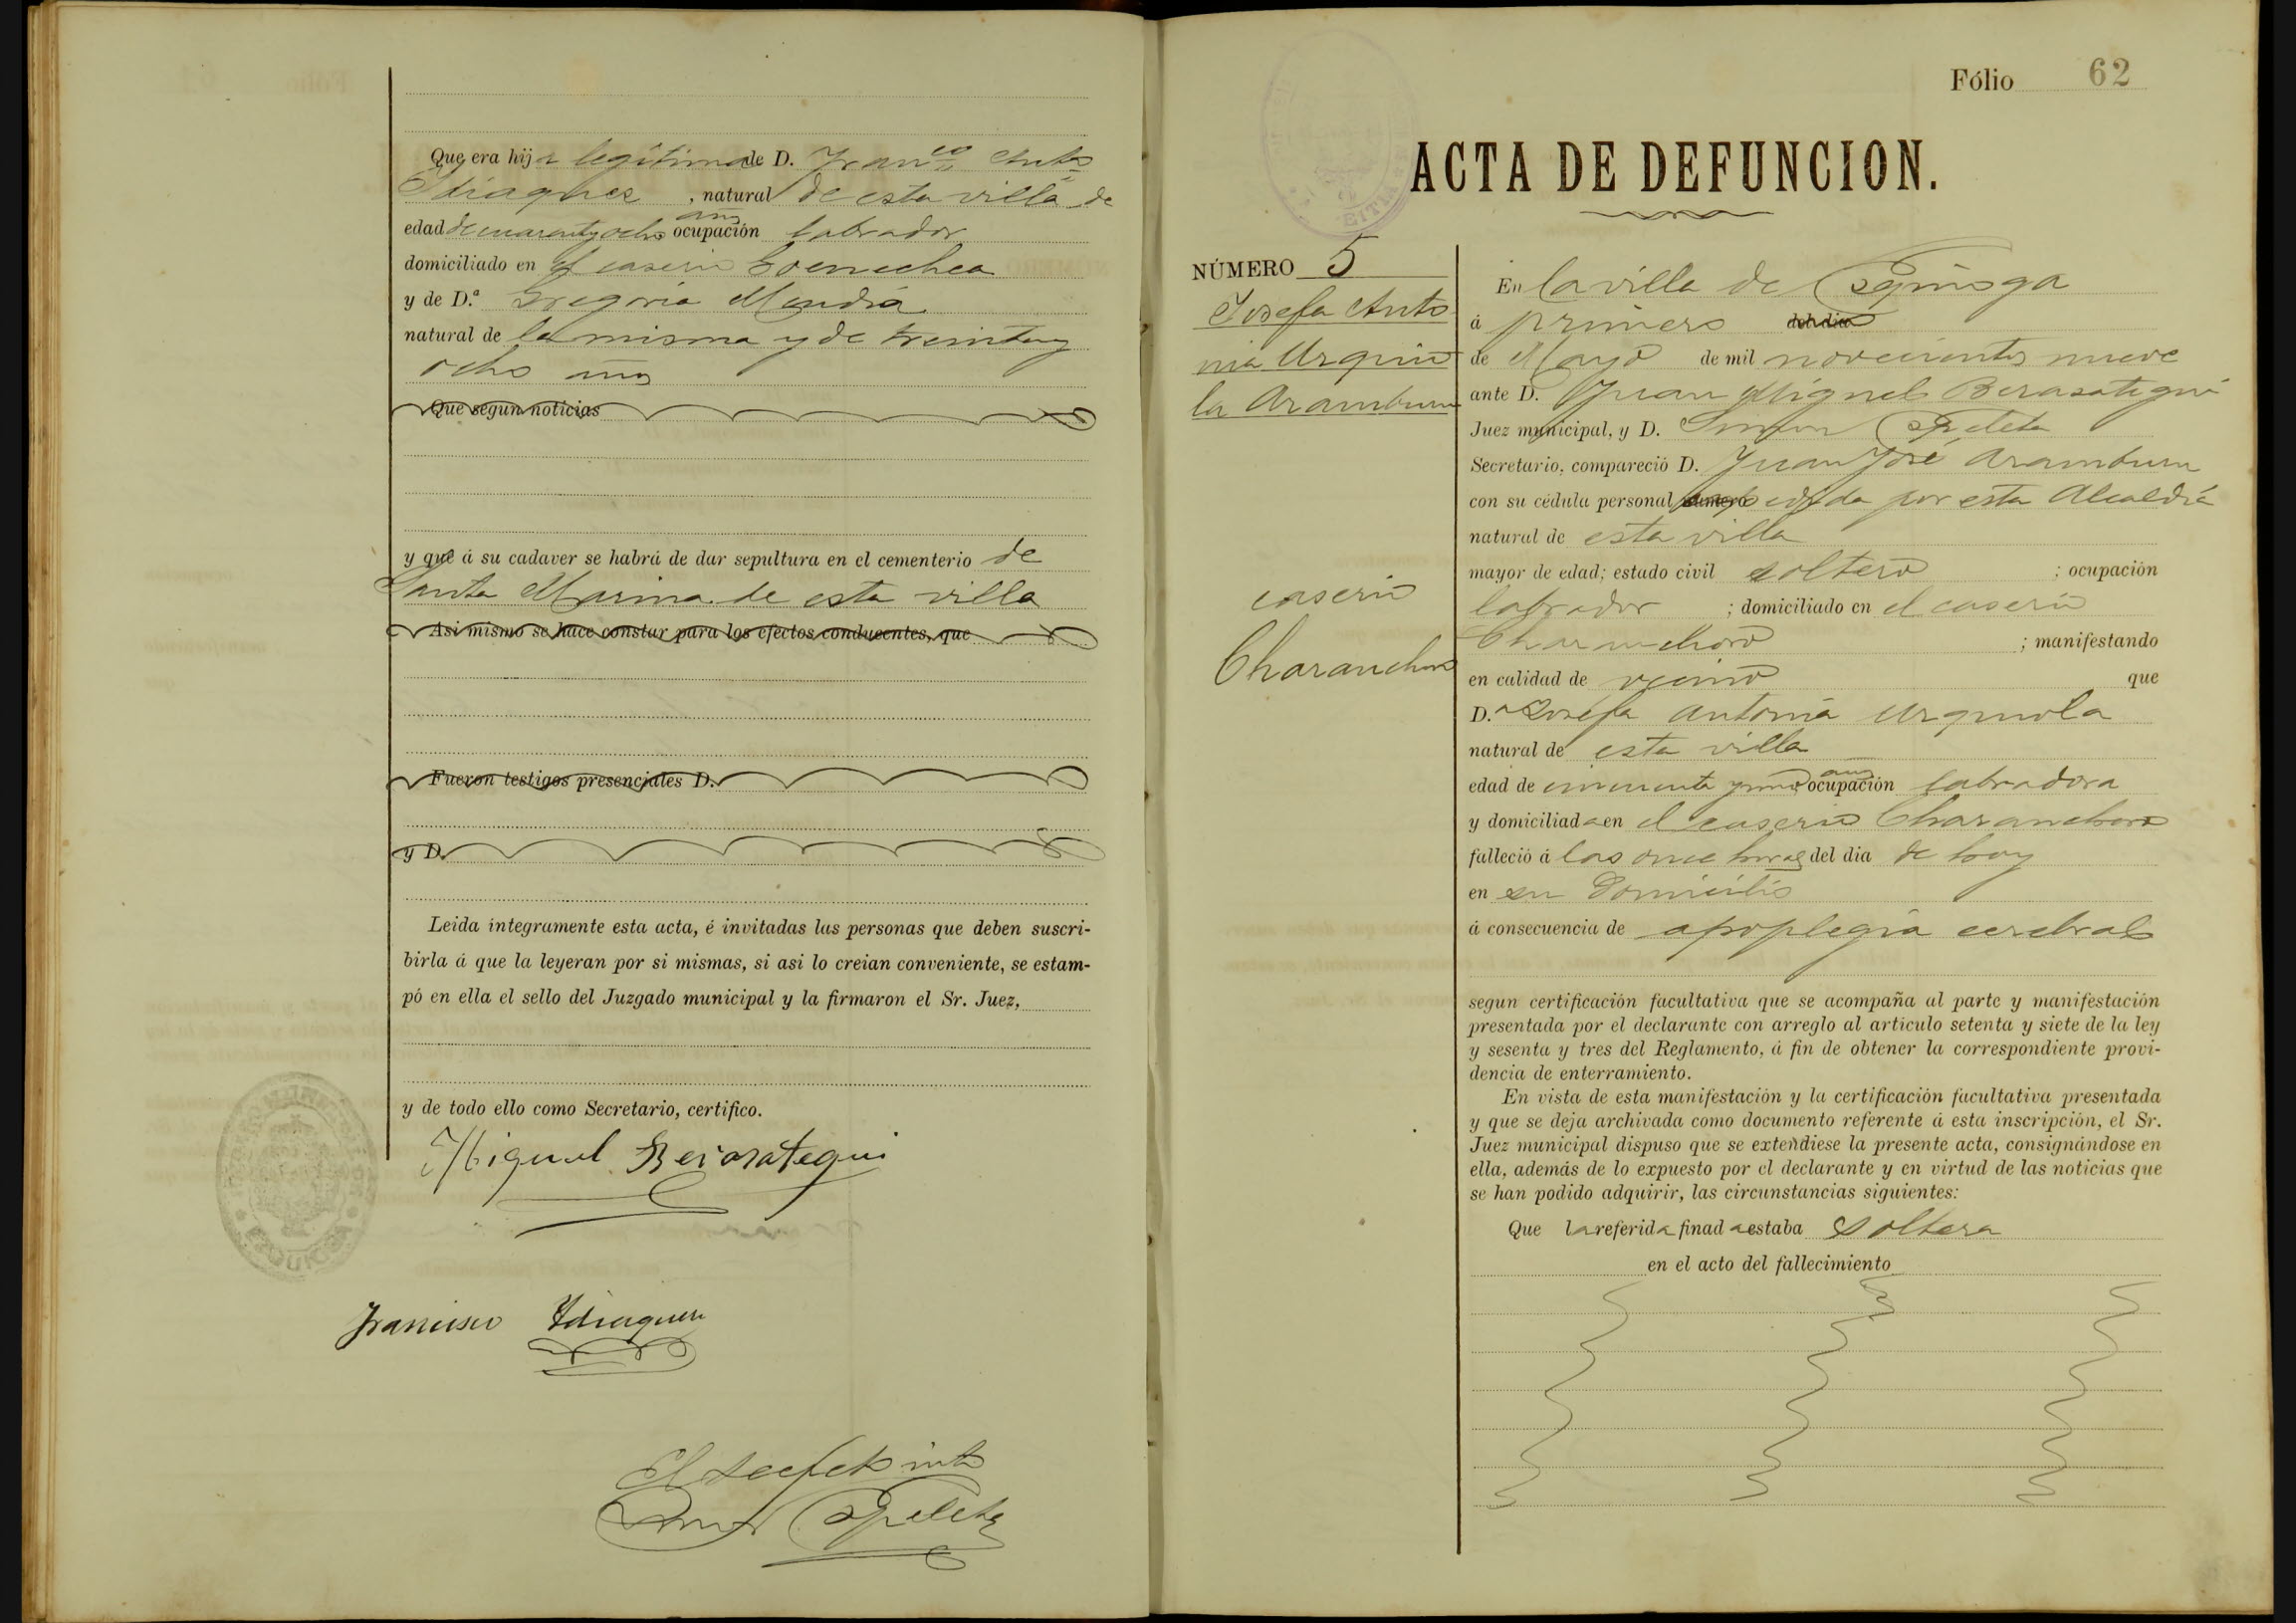 Que era hija legítima de D. Fran.co Ant.o
Idiaquez, natural de esta villa de
edad de cuarenta y ocho años ocupación labrador
domiciliado en el caserio Goenechea
y de D.ª Gregoria Mendia
natural de la misma y de treinta y
ocho años
Que segun noticias
y que á su cadaver se habrá de dar sepultura en el cementerio de
Santa Marina de esta villa
Asi mismo se hace constar para los efectos conducentes, que
Fueron testigos presenciales D.
y D.
Leida íntegramente esta acta, é invitadas las personas que deben suscri-
birla á que la leyeran por si mismas, si asi lo creian conveniente, se estam-
pó en ella el sello del Juzgado municipal y la firmaron el Sr. Juez,
y de todo ello como Secretario, certifico.
Miguel Berasategui
Francisco Idiaquez
El Sec
Simon Espeleta
Fólio 62
ACTA DE DEFUNCION.
NÚMERO 5
Josefa Anto
nia Urquio
la Aramburu
caserio
Charanchoro
En la villa de Ezquioga
á primero del dia
de Mayo de mil novecientos nueve
ante D. Juan Miguel Berasategui
Juez municipal, y D. Simon Espeleta
Secretario, compareció D. Juan José Aramburu
con su cédula personal expedida por esta Alcaldía
natural de esta villa
mayor de edad; estado civil soltero ; ocupación
labrador ; domiciliado en el caserio
Charanchoro ; manifestando
en calidad de vecino que
D.ª Josefa Antonia Urquiola
natural de esta villa
edad de cincuenta y uno años ocupación labradora
y domiciliada en el caserio Charanchoro
falleció á las once horas del dia de hoy
en su domicilio
á consecuencia de apoplegia cerebral
segun certificación facultativa que se acompaña al parte y manifestación
presentada por el declarante con arreglo al articulo setenta y siete de la ley
y sesenta y tres del Reglamento, á fin de obtener la correspondiente provi-
dencia de enterramiento.
En vista de esta manifestación y la certificación facultativa presentada
y que se deja archivada como documento referente á esta inscripción, el Sr.
Juez municipal dispuso que se extendiese la presente acta, consignándose en
ella, además de lo expuesto por el declarante y en virtud de las noticias que
se han podido adquirir, las circunstancias siguientes:
Que la referida finada estaba soltera
en el acto del fallecimiento